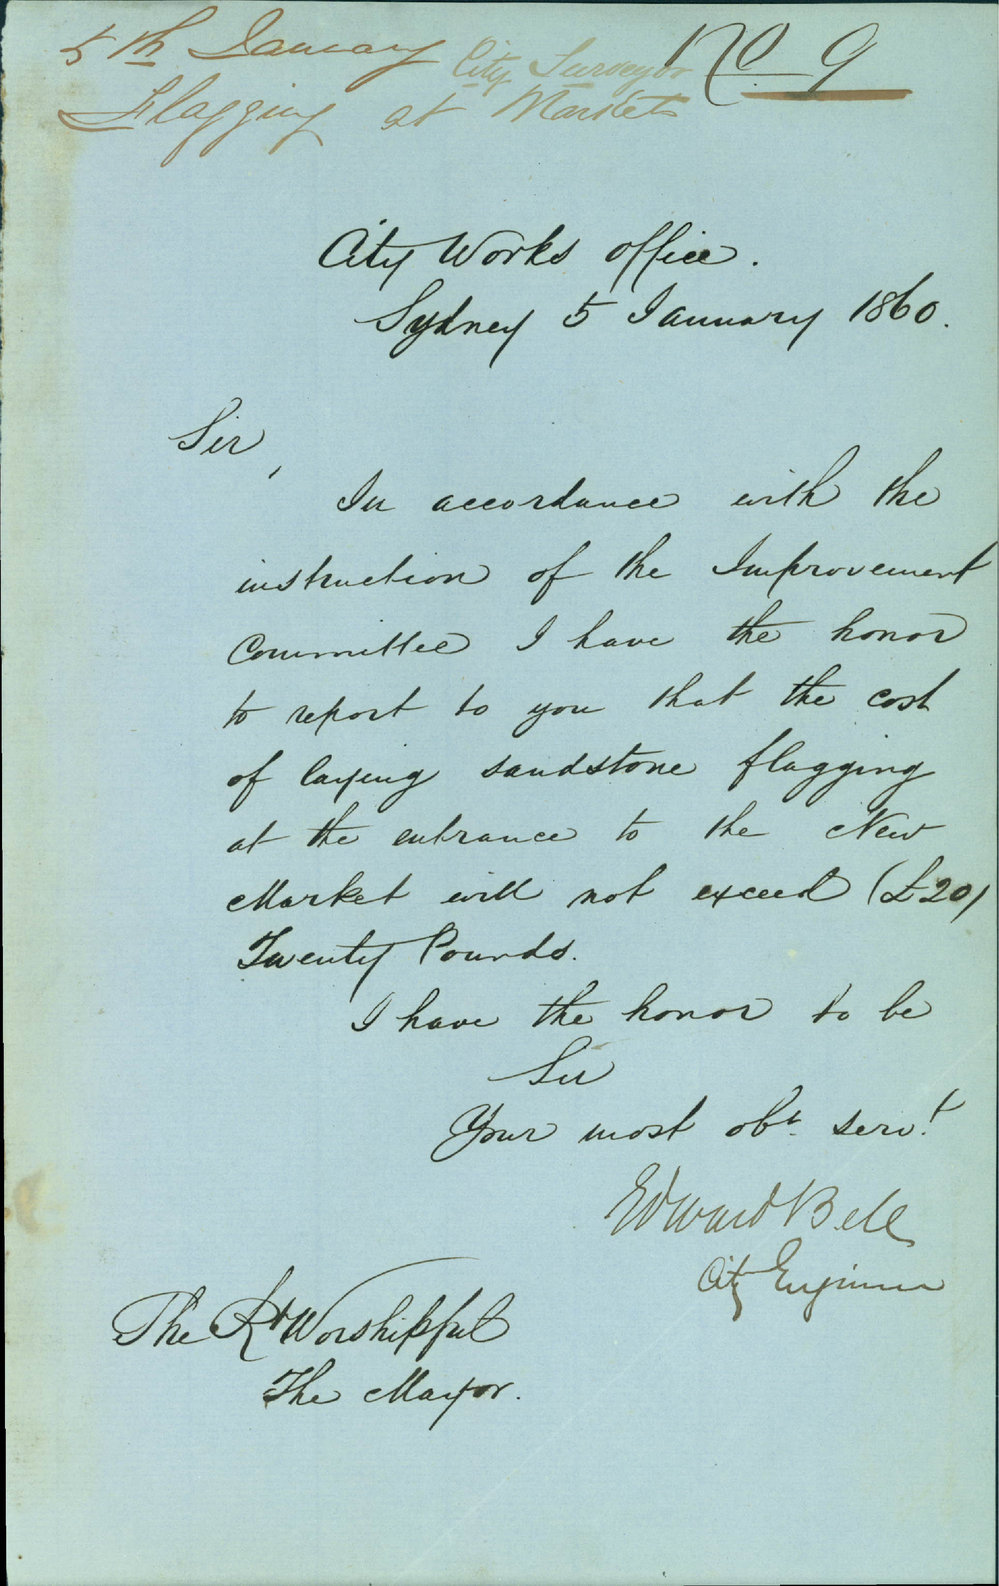 5th January City Surveyor No 9
Flagging at Markets
City Works Office.
Sydney 5 January 1860.
Sir,
In accordance with the
instruction of the Improvement
Committee I have the honor
to report to you that the cost
of laying sandstone flagging
at the entrance to the New
Market will not exceed (£20)
Twenty Pounds.
I have the honor to be
Sir
Your most obt. servt.
Edward Bell
City Engineer
The Rt Worshipful
The Mayor.